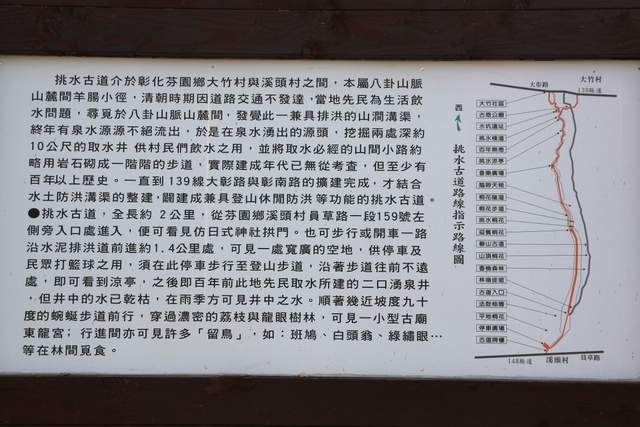 挑水古道介於彰化芬園鄉大竹村與溪頭村之間，本屬八卦山脈
山麓間羊腸小徑，清朝時期因道路交通不發達，當地先民為生活飲
水問題，尋覓於八卦山脈山麓間，發覺此一兼具排洪的山澗溝渠，
終年有泉水源源不絕流出，於是在泉水湧出的源頭，挖掘兩處深約
10公尺的取水井 供村民們飲水之用，並將取水必經的山間小路約
略用岩石砌成一階階的步道，實際建成年代已無從考查，但至少有
百年以上歷史。一直到139線大彰路與彰南路的擴建完成，才結合
水土防洪溝渠的整建，闢建成兼具登山休閒防洪等功能的挑水古道。
●挑水古道，全長約 2公里，從芬園鄉溪頭村員草路一段159號左
側旁入口處進入，便可看見仿日式神社拱門。也可步行或開車一路
沿水泥排洪道前進約1.4公里處，可見一處寬廣的空地，供停車及
民眾打籃球之用，須在此停車步行至登山步道，沿著步道往前不遠
處，即可看到涼亭，之後即百年前此地先民取水所建的二口湧泉井
，但井中的水已乾枯，在雨季方可見井中之水。順著幾近坡度九十
度的蜿蜒步道前行，穿過濃密的荔枝與龍眼樹林，可見一小型古廟
東龍宮；行進間亦可見許多「留鳥」，如：斑鳩、白頭翁、綠繡眼…
等在林間覓食。
挑水古道路線指示路線圖
西
大彰路
大竹村
139縣道
大竹社區
古意公廟
水坑遺址
挑水棧道
百年無患
挑水涼亭
景觀廣場
桐花隧道
桐花步道
挑水桐花
迎賓桐花
碧山古道
山頂桐花
香楠森林
林蔭徒坡
古道入口
活動柏園
平地桐花
停車廣場
古道牌樓
148縣道
溪頭村
員草路